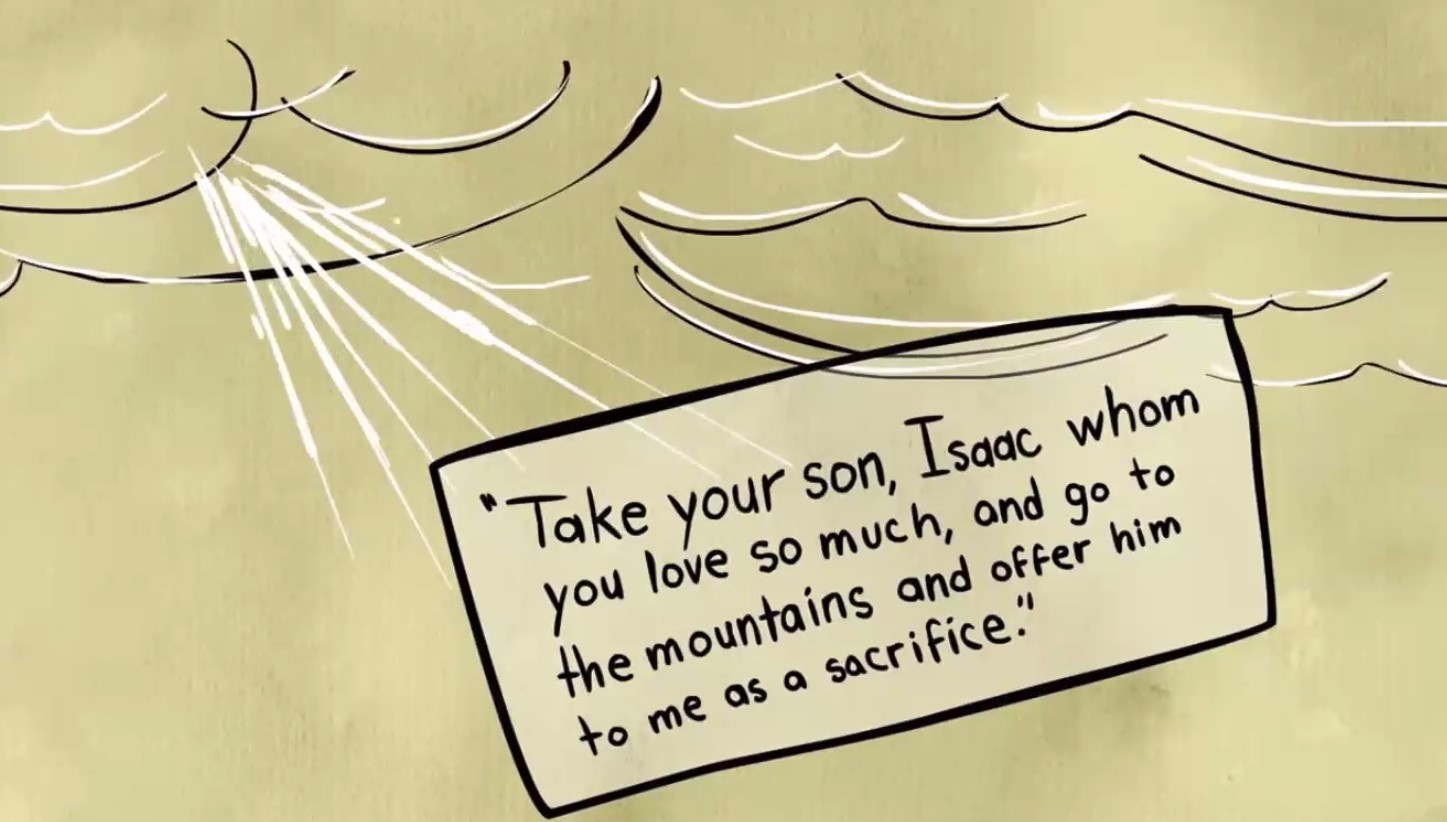 "Take your son, Isaac whom
you love so much, and go to
the mountains and offer him
to me as a sacrifice."